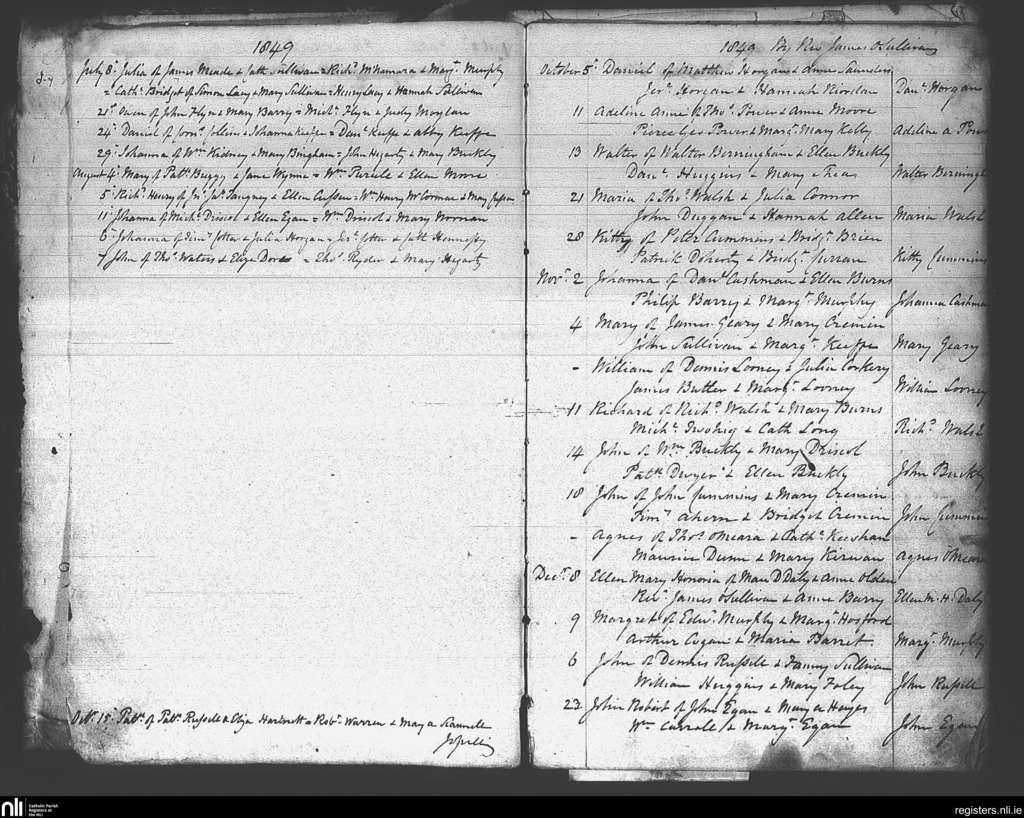 1849
July 8th Julia of James Meade & Cath Sullivan = Richd McNamara & Margt Murphy
= Cathe Bridget of Simon Lacy & Mary Sullivan = Henry Lacy & Hannah Sullivan
21st Owen of John Flyn & Mary Barry = Michl Flyn & Judy
24th Daniel of Corns Collins & Johanna Keeffe = Danl Keeffe & Abby Keeffe
29th Johanna of Wm Kidney & Mary Bingham = John Hegarty & Mary Buckly
August 4th Mary of Patk Buggy & Jane Wynne = Wm & Ellen Moore
5th Richd Henry of & Ellen Cussen = Wm Henry McCormac & Mary Cussen
11th Johanna of Michl Driscol & Ellen Egan = Wm Driscol & Mary Noonan
6th Johanna of Timy Cotter & Julia Horgan = Jery Cotter & Cath Hennessy
7 John of Thos Waters & Eliza = Thos Ryder & Mary Hegarty
Octr 15th Patk of Patk Russell & Eliza Hartnett = Robt Warren & Mary A Scannell
1849 By Rev James OSullivan
October 5th Daniel of Matthew Horgan & Anne Saunders
Jery Horgan & Hannah Riordan Danl Horgan
11 Adeline Anne of Thos Power & Anne Moore
Pierce Power & Margt Mary Kelly Adeline A Power
13 Walter of Walter Berningham & Ellen Buckly
Danl Huggins & Mary Shea Walter Berningh
21 Maria of Thos Walsh & Julia Connor
John Duggan & Hannah Allen Maria Walsh
28 Kitty of Peter Cummins & Bridgt Brien
Patrick Doherty & Bridgt Curran Kitty Cummins
Novr 2 Johanna of Danl Cashman & Ellen Burns
Philip Barry & Margt Murphy Johanna Cashma
4 Mary of James Geary & Mary Cremin
John Sullivan & Margt Keeffe Mary Geary
- William of Dennis Looney & Julia Corkery
James Butler & Margt Looney William Looney
11 Richard of Richd Walsh & Mary Burns
Michl Twohig & Cath Long Richd Walsh
14 John of Wm Buckly & Mary Driscol
Patk Dwyer & Ellen Buckly John Buckly
18 John of John Cummins & Mary Cremin
Timy Ahern & Bridget Cremin John Cummin
- Agnes of Thos OMeara & Cathe Keeshan
Maurice Dunn & Mary Kirwan Agnes OMeara
Decr 8 Ellen Mary Honoria of Mau D Daly & Anne Olden
Revd James OSullivan & Anne Barry Ellen M. H. Daly
9 Margret of Edwd Murphy & Margt Hosford
Arthur Cogan & Maria Barret Margt Murphy
6 John of Dennis Russell & Fanny Sullivan
William Huggins & Mary Foley John Russell
23 John Robert of John Egan & Mary A Hayes
Wm Carroll & Margt Egan John Egan
nli
Catholic Parish
Registers at
the NLI
registers.nli.ie